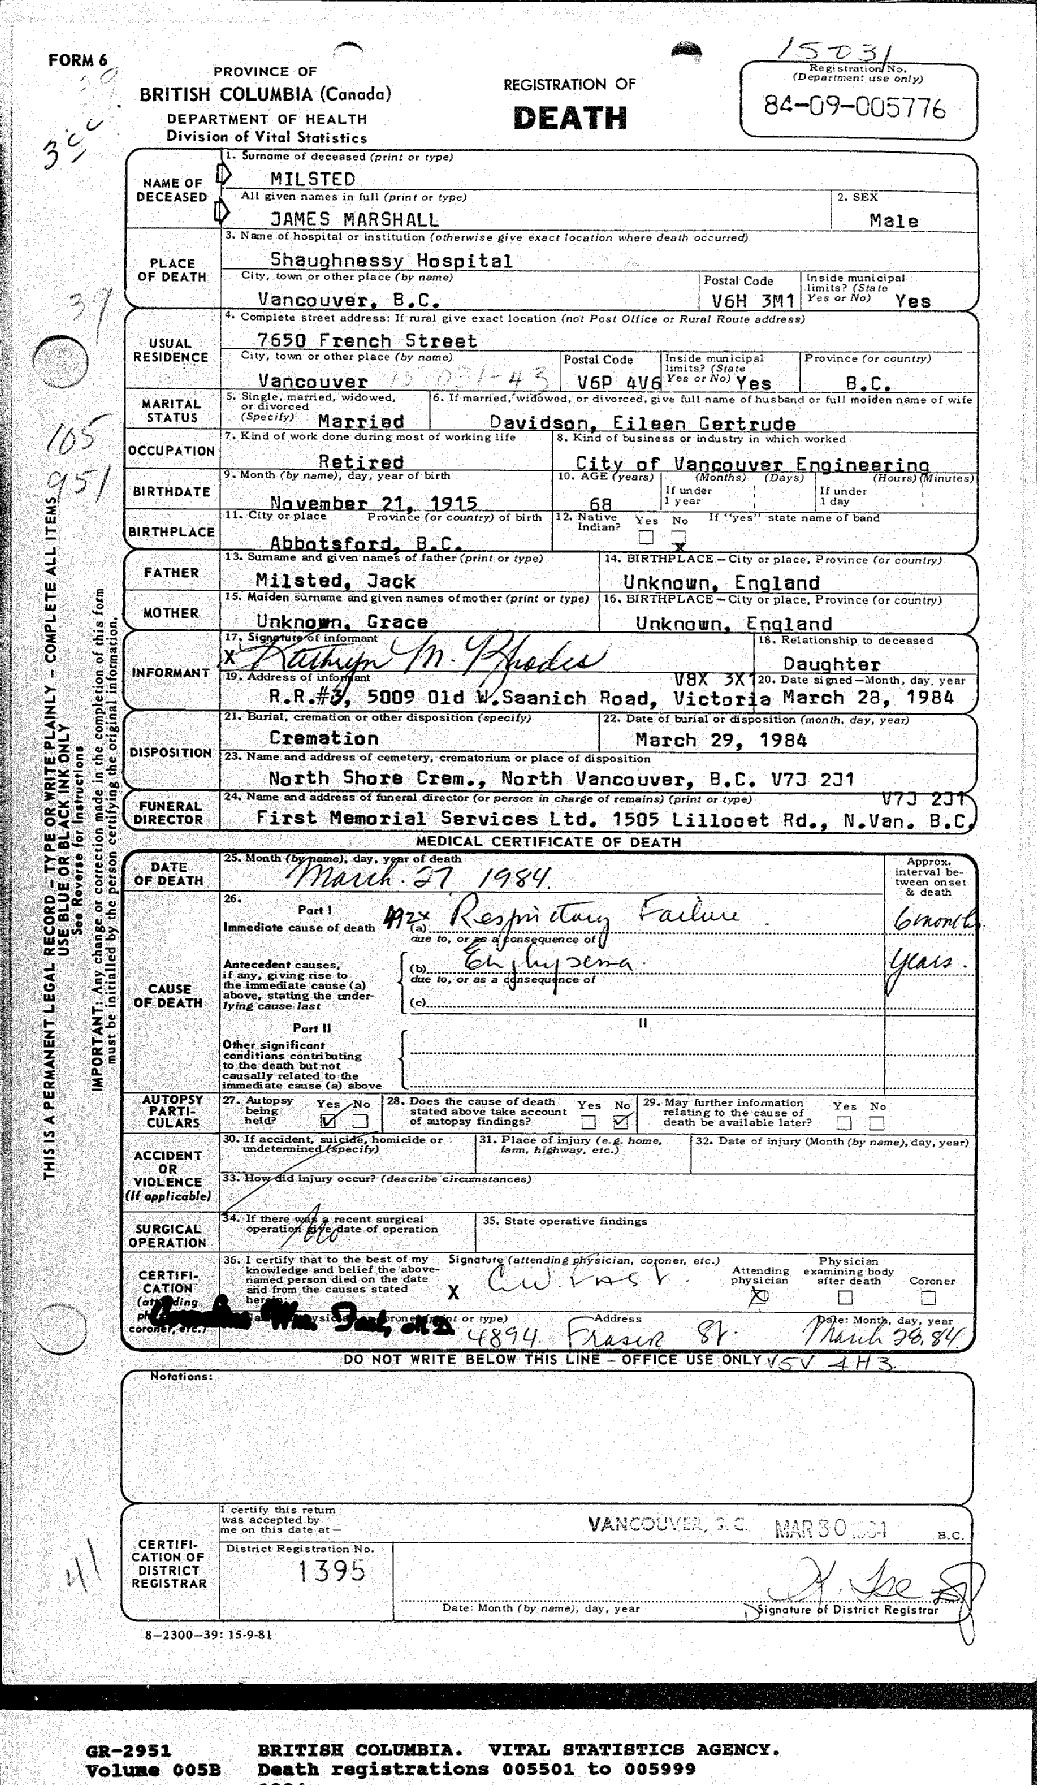 15031
FORM 6
PROVINCE OF
BRITISH COLUMBIA (Canada)
DEPARTMENT OF HEALTH
Division of Vital Statistics
REGISTRATION OF
DEATH
Registration No.
(Department use only)
84-09-005776
NAME OF DECEASED
1. Surname of deceased (print or type)
MILSTED
All given names in full (print or type)
JAMES MARSHALL
2. SEX
Male
PLACE OF DEATH
3. Name of hospital or institution (otherwise give exact location where death occurred)
Shaughnessy Hospital
City, town or other place (by name)
Vancouver, B.C.
Postal Code
V6H 3M1
Inside municipal limits? (State Yes or No) Yes
USUAL RESIDENCE
4. Complete street address: If rural give exact location (not Post Office or Rural Route address)
7650 French Street
City, town or other place (by name)
Vancouver
15 031-43
Postal Code
V6P 4V6
Inside municipal limits? (State Yes or No) Yes
Province (or country)
B.C.
MARITAL STATUS
5. Single, married, widowed, or divorced (Specify) Married
6. If married, widowed, or divorced, give full name of husband or full maiden name of wife
Davidson, Eileen Gertrude
OCCUPATION
7. Kind of work done during most of working life
Retired
8. Kind of business or industry in which worked
City of Vancouver Engineering
BIRTHDATE
9. Month (by name), day, year of birth
November 21, 1915
10. AGE (years)
68
(Months) (Days)
If under 1 year
(Hours) (Minutes)
If under 1 day
BIRTHPLACE
11. City or place Province (or country) of birth
Abbotsford, B.C.
12. Native Indian?
Yes No
x
If "yes" state name of band
FATHER
13. Surname and given names of father (print or type)
Milsted, Jack
14. BIRTHPLACE – City or place, Province (or country)
Unknown, England
MOTHER
15. Maiden surname and given names of mother (print or type)
Unknown, Grace
16. BIRTHPLACE – City or place, Province (or country)
Unknown, England
INFORMANT
17. Signature of informant
X Kathryn M. Rhodes
18. Relationship to deceased
Daughter
19. Address of informant
V8X 3X1
R.R.#3, 5009 Old W.Saanich Road, Victoria
20. Date signed – Month, day, year
March 28, 1984
DISPOSITION
21. Burial, cremation or other disposition (specify)
Cremation
22. Date of burial or disposition (month, day, year)
March 29, 1984
23. Name and address of cemetery, crematorium or place of disposition
North Shore Crem., North Vancouver, B.C. V7J 2J1
FUNERAL DIRECTOR
24. Name and address of funeral director (or person in charge of remains) (print or type)
V7J 2J1
First Memorial Services Ltd. 1505 Lillooet Rd., N.Van. B.C.
MEDICAL CERTIFICATE OF DEATH
DATE OF DEATH
25. Month (by name), day, year of death
March 27 1984
Approx. interval between onset & death
CAUSE OF DEATH
26.
Part I
Immediate cause of death
492x
(a) Respiratory Failure
6 months
due to, or as a consequence of
Antecedent causes, if any, giving rise to the immediate cause (a) above, stating the underlying cause last
(b) Emphysema.
years.
due to, or as a consequence of
(c)
Part II
II
Other significant conditions contributing to the death but not causally related to the immediate cause (a) above
AUTOPSY PARTICULARS
27. Autopsy being held?
Yes No
28. Does the cause of death stated above take account of autopsy findings?
Yes No
29. May further information relating to the cause of death be available later?
Yes No
ACCIDENT OR VIOLENCE (If applicable)
30. If accident, suicide, homicide or undetermined (specify)
31. Place of injury (e.g. home, farm, highway, etc.)
32. Date of injury (Month (by name), day, year)
33. How did injury occur? (describe circumstances)
SURGICAL OPERATION
34. If there was a recent surgical operation give date of operation
No
35. State operative findings
CERTIFICATION (attending physician, coroner, etc.)
36. I certify that to the best of my knowledge and belief the above-named person died on the date and from the causes stated herein:
Signature (attending physician, coroner, etc.)
X
Attending physician
Physician examining body after death
Coroner
(print or type)
Address
4894 Fraser St.
Date: Month, day, year
March 28, 84
DO NOT WRITE BELOW THIS LINE – OFFICE USE ONLY
V5V 4H3
Notations:
CERTIFICATION OF DISTRICT REGISTRAR
I certify this return was accepted by me on this date at –
VANCOUVER, B.C. MAR 30 B.C.
District Registration No.
1395
Date: Month (by name), day, year
Signature of District Registrar
8-2300-39: 15-9-81
THIS IS A PERMANENT LEGAL RECORD – TYPE OR WRITE PLAINLY – COMPLETE ALL ITEMS
USE BLUE OR BLACK INK ONLY
See Reverse for Instructions
IMPORTANT: Any change or correction made in the completion of this form
must be initialled by the person certifying the original information.
39
105
951
41
GR-2951 BRITISH COLUMBIA. VITAL STATISTICS AGENCY.
Volume 005B Death registrations 005501 to 005999